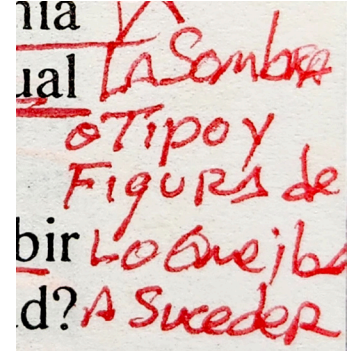 nia
ual LA SombRA
o Tipo y
FiguRA de
bir Lo Que iba
d? A SucedeR